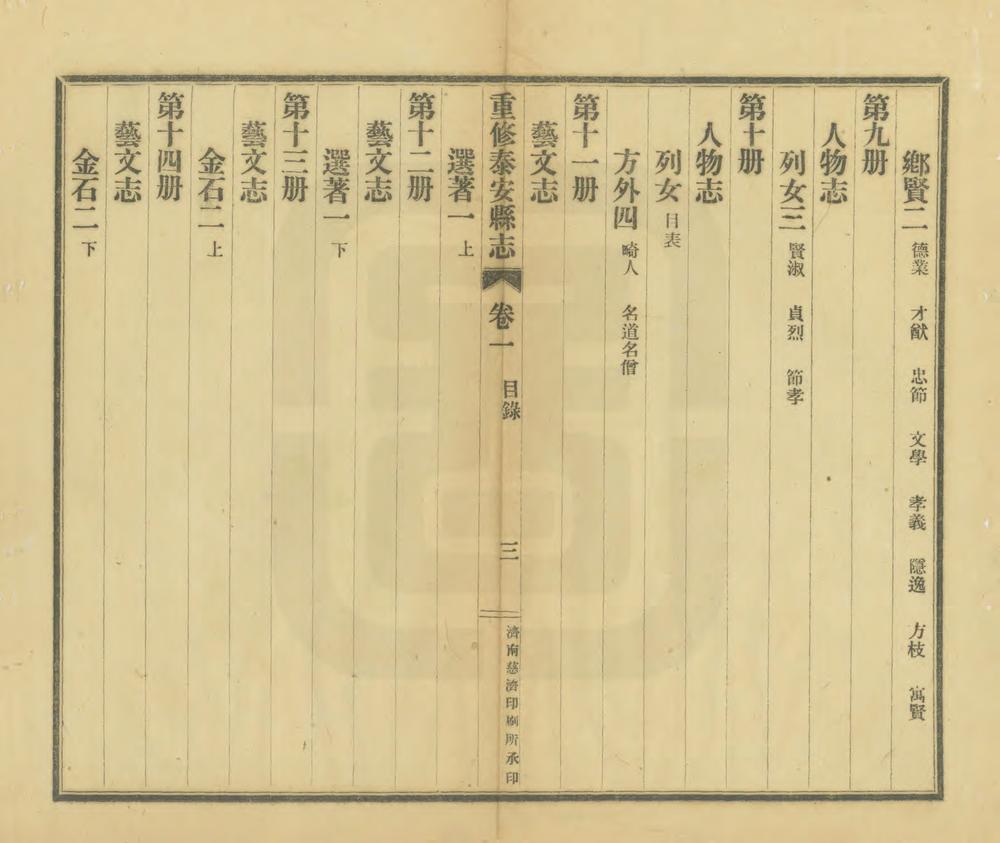 鄕賢二 德業 才猷 忠節 文學 孝義 隱逸 方枝 寓賢
第九册
人物志
列女三 賢淑 貞烈 節孝
第十册
人物志
列女 日表
方外四 畸人 名道名僧
第十一册
藝文志
重修泰安縣志 卷一 目錄 三 濟南慈濟印刷所承印
選著一 上
第十二册
藝文志
選著一 下
第十三册
藝文志
金石二 上
第十四册
藝文志
金石二 下